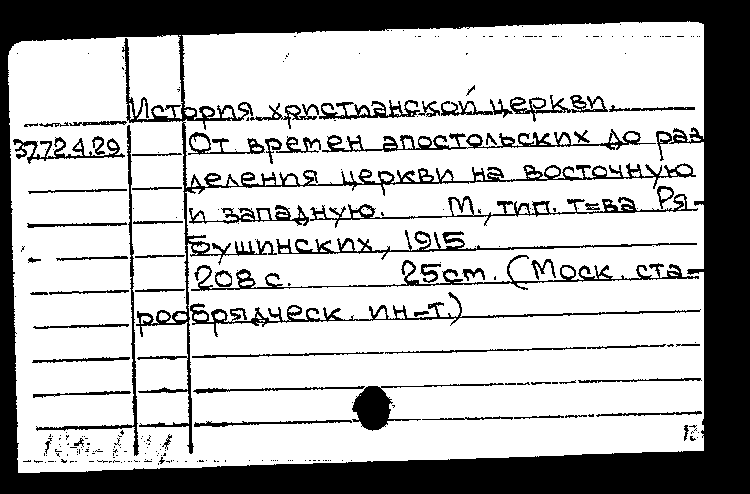 История христианской церкви.
3772.4.29 От времен апостольских до раз
деления церкви на восточную
и западную. М., тип. т=ва Ря-
бушинских, 1915.
208 с. 25cm. (Моск. ста-
рообрядческ. ин-т.)